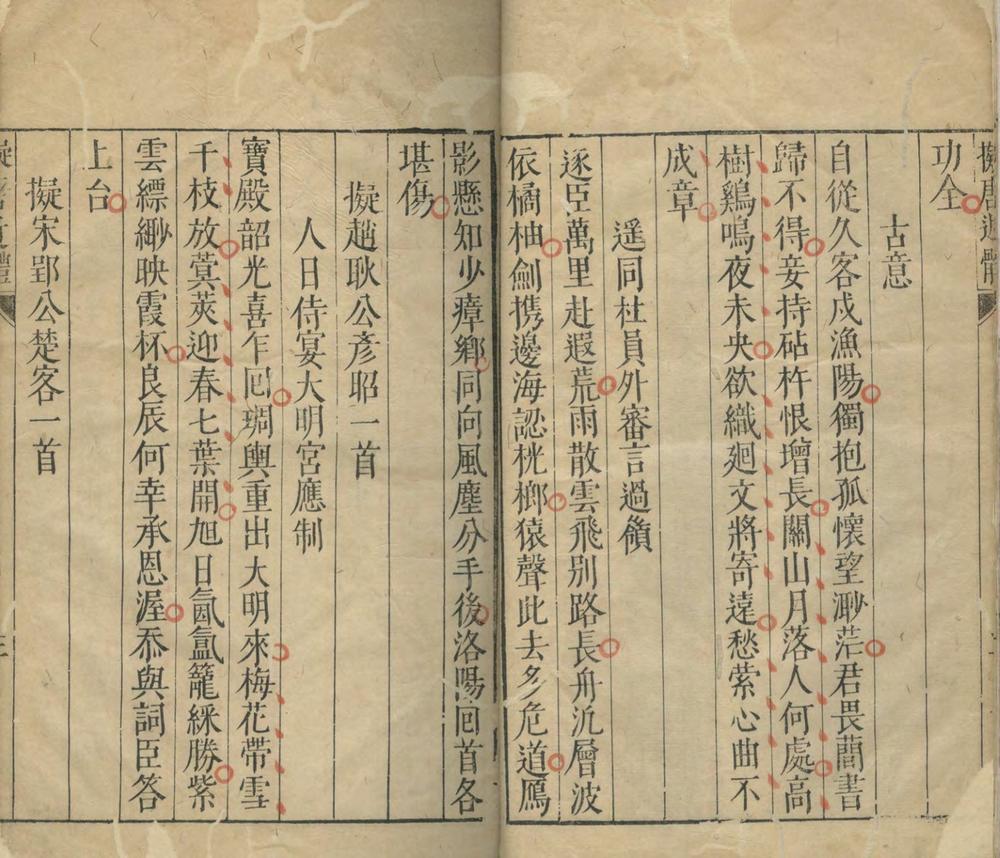 擬唐近體
功全
古意
自從久客成漁陽獨抱孤懷望渺茫君畏蕳書
歸不得妾持砧杵恨增長關山月落人何處高
樹鷄鳴夜未央欲織廻文將寄遠愁縈心曲不
成章
遥同杜員外審言過嶺
逐臣萬里赴遐荒雨散雲飛別路長舟汎層波
依橘柚劍携邊海認桄榔猿聲此去多危道鴈
影懸知少瘴鄉同向風塵分手後洛陽回首各
堪傷
擬趙耿公彥昭一首
人日侍宴大明宮應制
寶殿韶光喜乍囘琱輿重出大明來梅花帶雪
千枝放蓂莢迎春七葉開旭日氤氳籠綵勝紫
雲縹緲映霞杯良辰何幸承恩渥忝與詞臣答
上台
擬宋郢公楚客一首